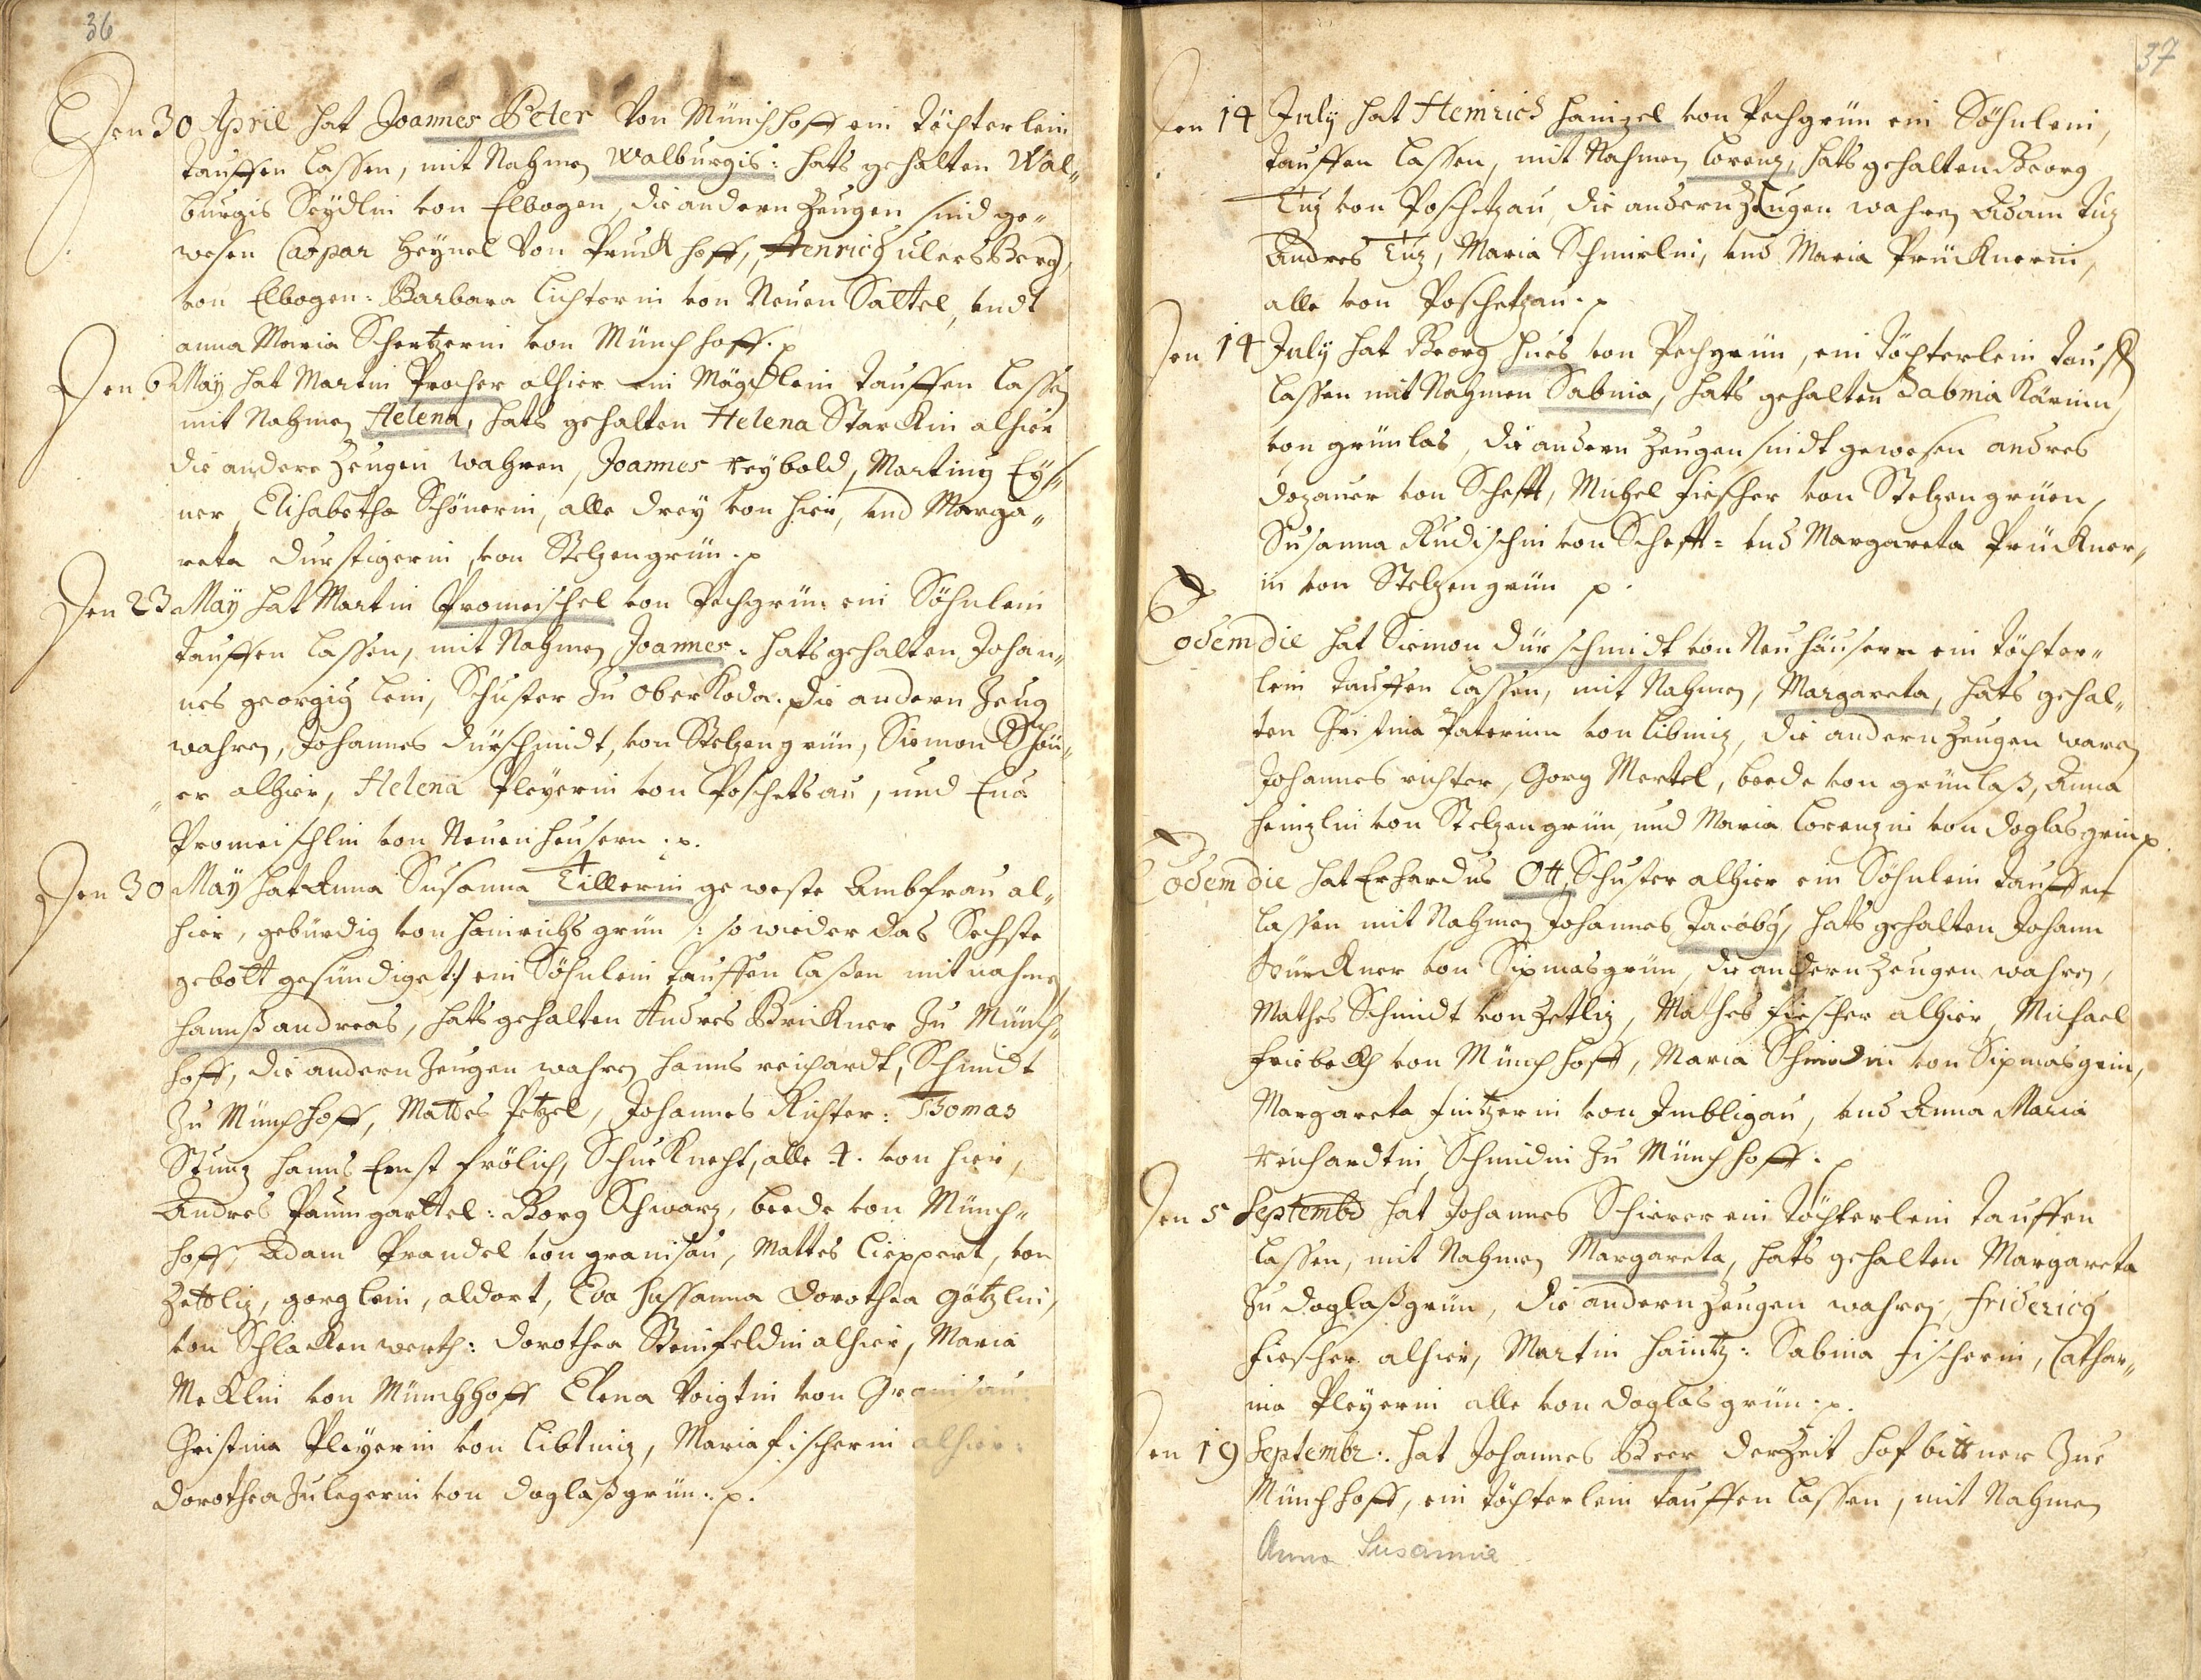 36
Den 30 April hat Joannes Peter von Münichhoff ein töchterlein
tauffen lassen, mit Nahmen Walburgis: hats gehalten Wal„
burgis Seÿdlin von Elbogen, die andern Zeugen sind ge„
wesen Caspar Heÿnel von Pruckhoff, Henrich ulersberg,
von Elbogen: Barbara lichterin von Neuen Sattel, undt
anna Maria Schertzerin von Münchhoff. p
Den 6 Maÿ hat Martin Procher alhier ein Mägdlein tauffen lassen
mit Nahmen Helena, hats gehalten Helena Starckin alhier
die andere Zeugen wahren, Joannes reÿbold, Martinus Eÿß„
ner, Elisabetha Schönerin, alle dreÿ von hier, und Marga„
reta durstigerin von Stelzengrün. p
Den 23 Maÿ hat Martin Promeischel von Pechgrün ein Söhnlein
tauffen lassen, mit Nahmen Joannes: hats gehalten Johan„
nes georgius lein, Schuster zu oberkoda. die andern Zeug
wahren, Johannes dürschmidt, von Stelzengrün, Siemon Schön„
„er alhier, Helena Pleÿerin von Poschetsau, und Eua
Promeischlin von Neuenheusern. p.
Den 30 Maÿ hat Anna Susanna Tillerin geweste Ambfrau al„
hier, gebürdig von Heinrichsgrün /: so wieder das Sechste
gebott gesündiget :/ ein Söhnlein tauffen laßen mit nahmen
hannß andreas, hats gehalten Andres Brickner zu Münch„
hoff, die andern Zeugen wahren hanns reichardt, Schmidt
zu Münchhoff, Mattes Petzel, Johannes Richter: Thomas
Stunz hanns Ernst frölich, Schueknecht, alle 4. von hier,
Andres Paumgarttel: Georg Schwarz, beede von Münch„
hoff, Adam Prandel von granisau, Mattes lieppert, von
Zettliz, gorg lein, aldort, Eva Hussanna Dorothea Götzlin,
von Schlackenwerth: dorothea Steinfeldin alhier, Maria
Mecklin von Münchhoff Elena Voigtin von Granisau:
Christina Pleÿerin von libtmiz, Maria fischerin alhier:
dorothea Zulegerin von doglaßgrün. p.
37
Den 14 Julÿ hat Heinrich hainzel von Pechgrün ein Söhnlein,
tauffen lassen, mit Nahmen lorenz, hats gehalten Georg
Tuz von Poschetzau, die andern Zeugen wahren Adam tuz
Andres Tuz, Maria Schmirlin, und Maria Prücknerin,
alle von Poschetzau. p
Den 14 Julÿ hat Georg hues von Pechgrün, ein töchterlein tauffen
lassen mit Nahmen Sabina, hats gehalten Sabina Kärnin,
von grünlas, die andern Zeugen sindt gewesen andres
dozauer von Schefft, Michel fiescher von Stelzengrüen,
Susanna Rudischin von Schefft = und Margareta Prückner„
in von Stelzengrün p.
Eodem die hat Siemon dürschmidt von Neuhäusern ein töchter„
lein tauffen lassen, mit Nahmen, Margareta, hats gehal„
ten Christina Paterinn von libmiz, die andern Zeugen waren
Johannes richter, Gorg Mertel, beede von grünlaß, Anna
heinzlin von Stelzengrün, und Maria lorenzin von doglasgrün p
Eodem die hat Erhardus Ott, Schuster alhier ein Söhnlein tauffen
lassen mit Nahmen Johannes Jacobÿ, hats gehalten Johann
Pürckner von Sixmasgrün, die andern Zeugen wahren,
Mathes Schmidt von Zetliz, Mathes fiescher alhier, Michael
friebesch von Münchhoff, Maria Schmidin von Sixmasgrin,
Margareta fintzerin von Imbligau, und Anna Maria
reichardtin Schmidin zu Münchhoff.
Den 5 Septembr hat Johannes Schierer ein töchterlein tauffen
lassen, mit Nahmen Margareta, hats gehalten Margareta
zu doglaßgrün, die andern Zeugen wahren, fridericus
fiescher alhier, Martin haintz: Sabina fischerin, Cathar„
ina Pleÿerin alle von doglasgrün: p.
Den 19 Septembr: hat Johannes Beer derzeit hofbittner Zue
Münchhoff, ein töchterlein tauffen lassen, mit Nahmen
Anna Susanna